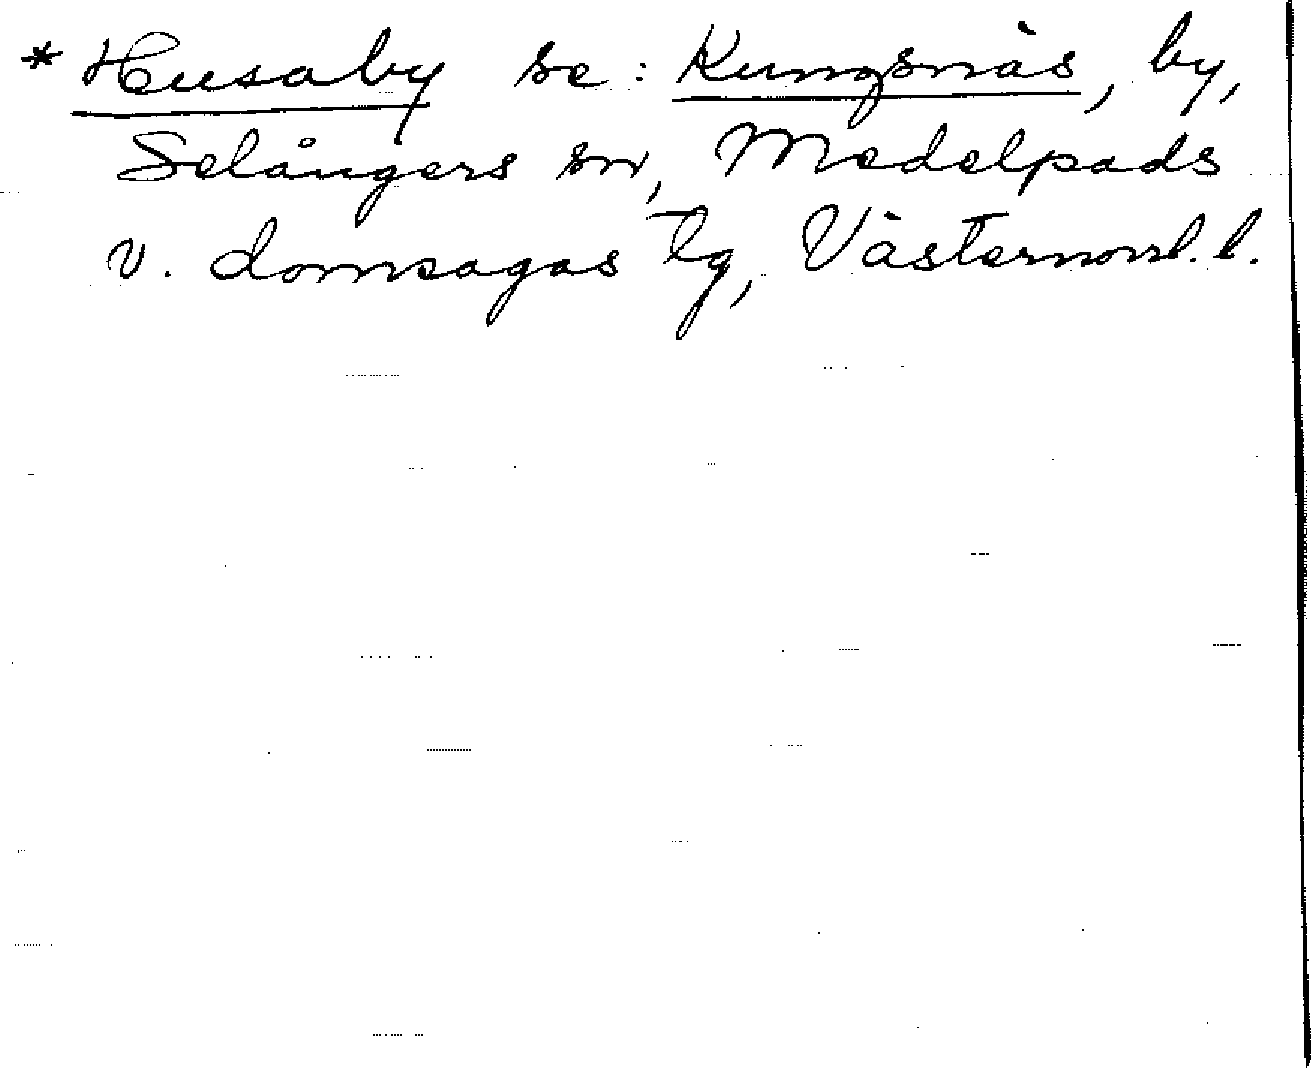 * Husaby se: Kungsnäs, by,
Selångers sn, Medelpads
v. domsagas tg, Västernorrl. l.